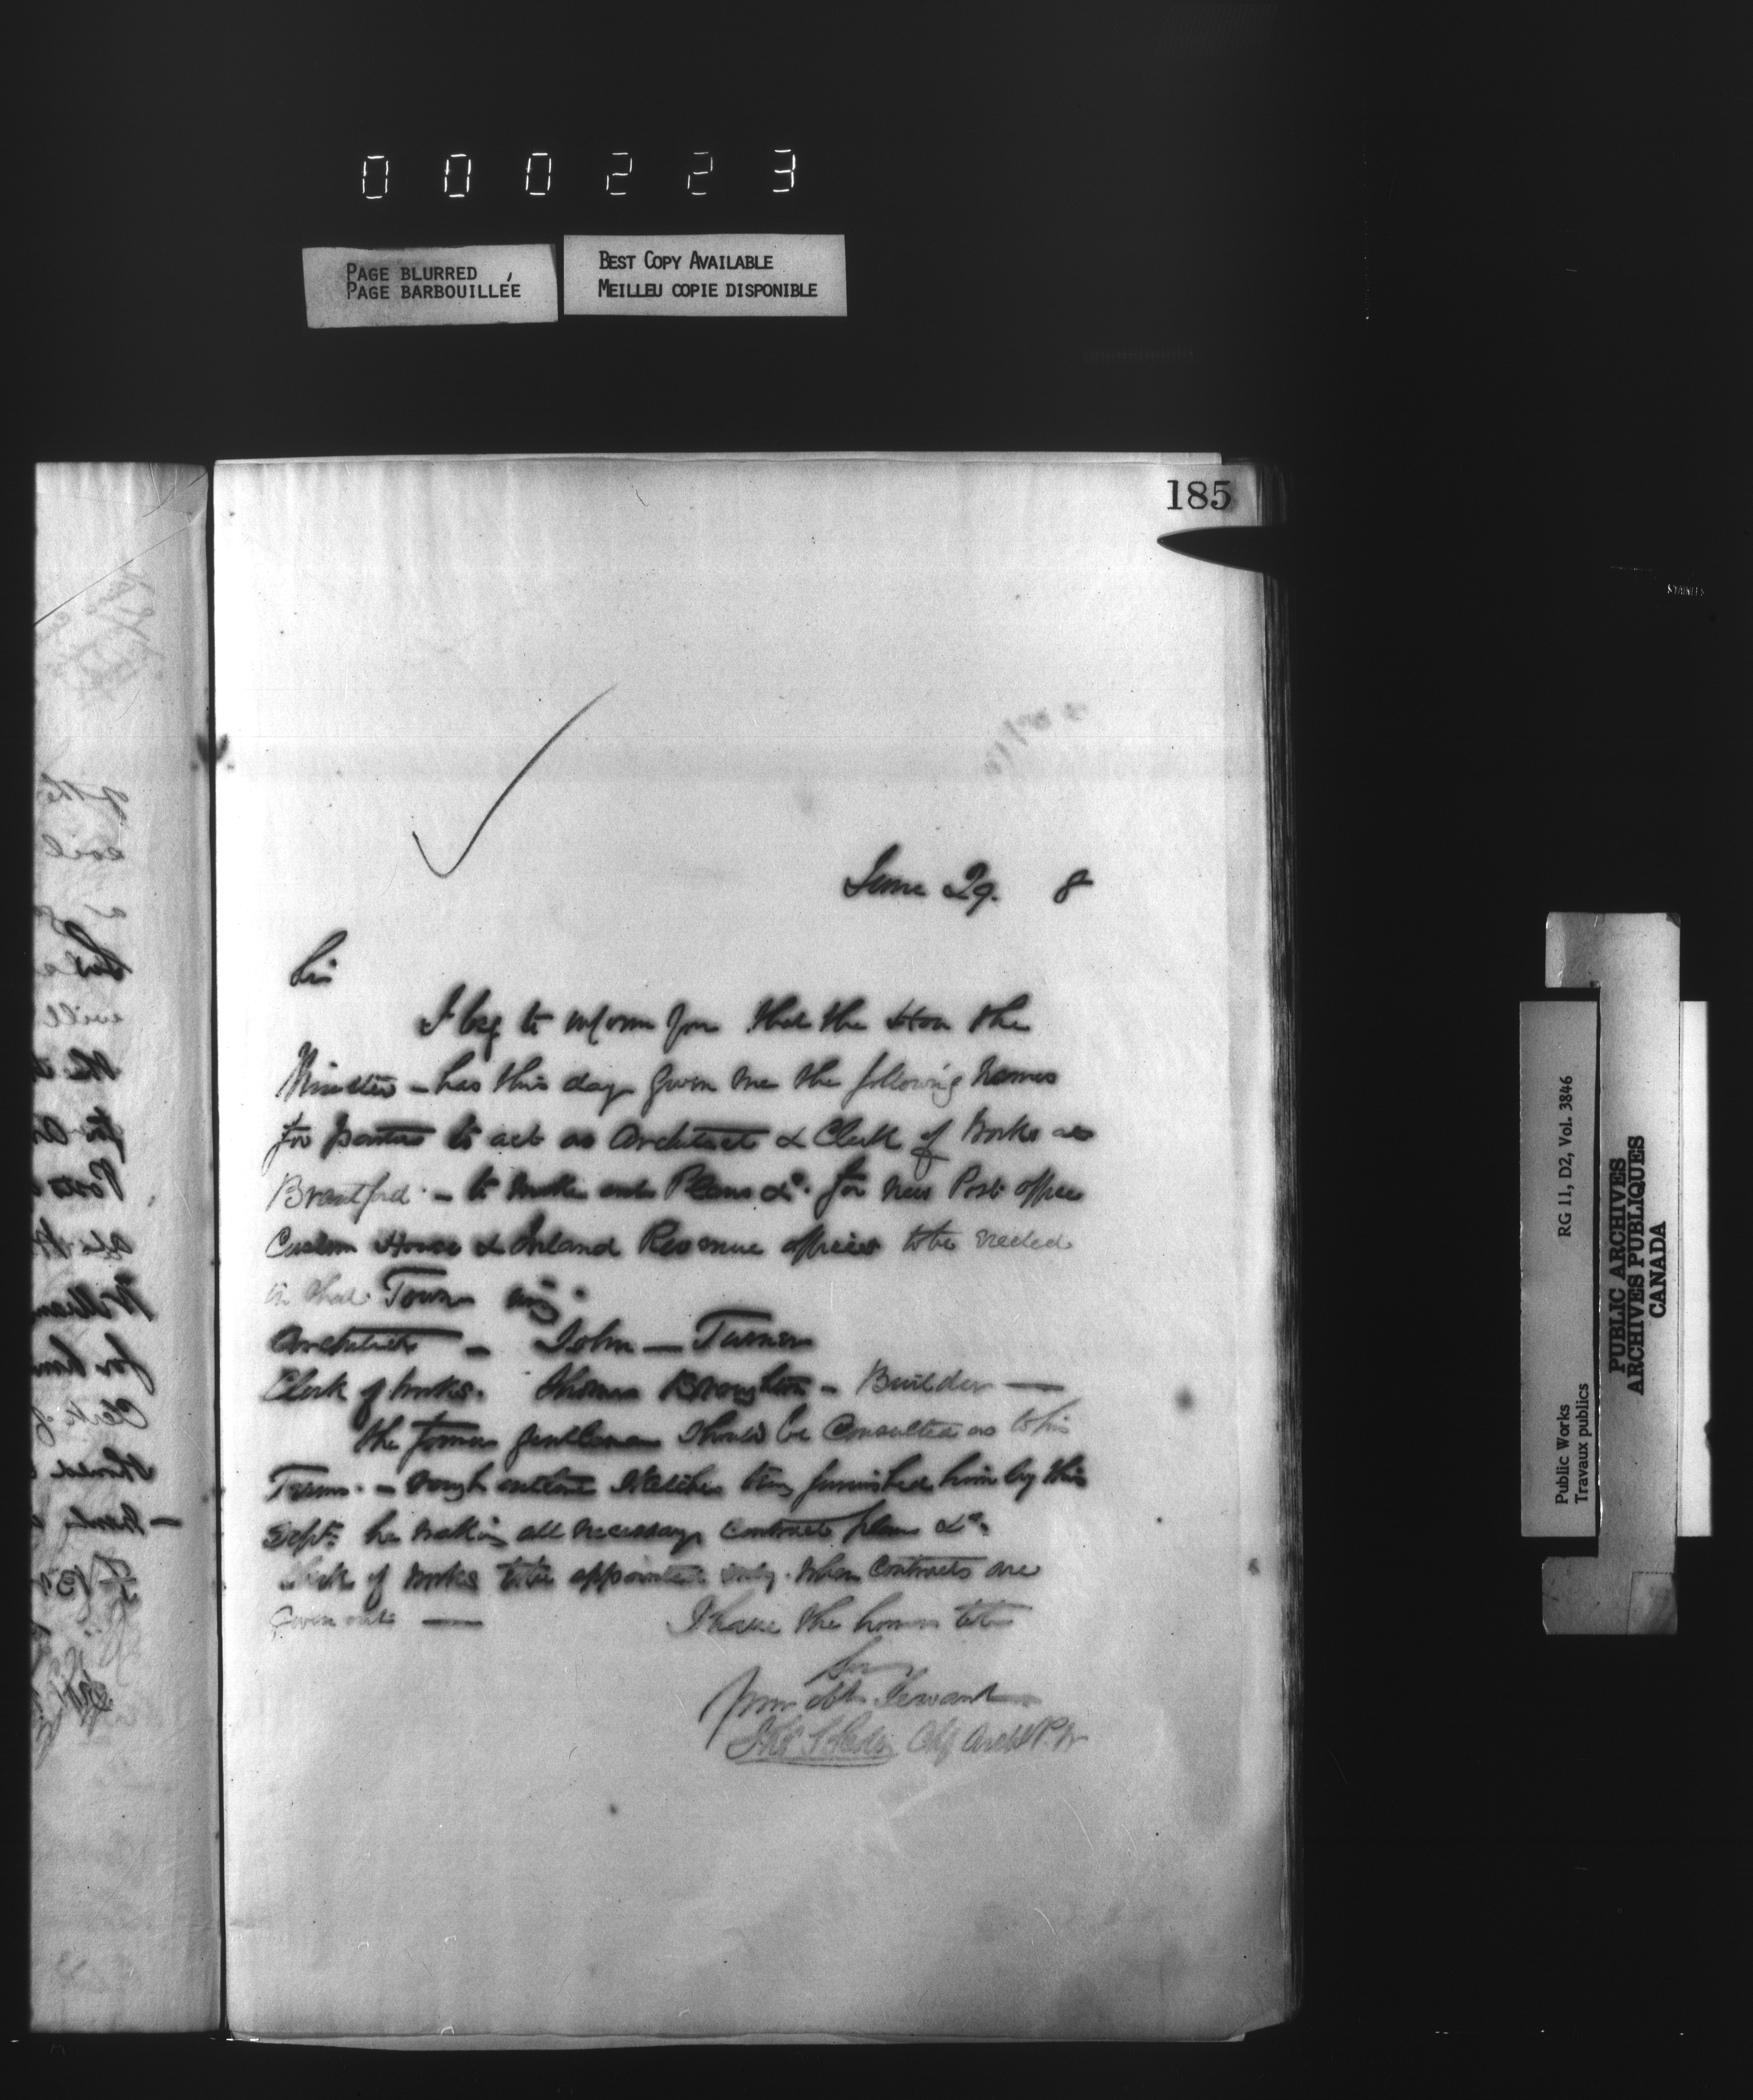 000223
PAGE BLURRED
PAGE BARBOUILLÉE
BEST COPY AVAILABLE
MEILLEU COPIE DISPONIBLE
185
June 29. 8
Sir
I beg to inform you that the Hon the
Minister - has this day given me the following names
for parties to act as Architect & Clerk of Works at
Brantford - to make out Plans &c. for new Post office
Custom House & Inland Revenue offices to be erected
in that Town viz.
Architect - John - Turner
Clerk of Works. Thomas Broughton - Builder -
The former gentleman should be Consulted as to his
Terms. - rough outline Sketches being furnished him by this
Dept. he making all necessary contract plans &c.
Clerk of Works to be appointed only when Contracts are
Given out - I have the honor to be
Sir
Your Obt Servant
Chf Archt P.W
Public Works
Travaux publics
RG 11, D2, Vol. 3846
PUBLIC ARCHIVES
ARCHIVES PUBLIQUES
CANADA